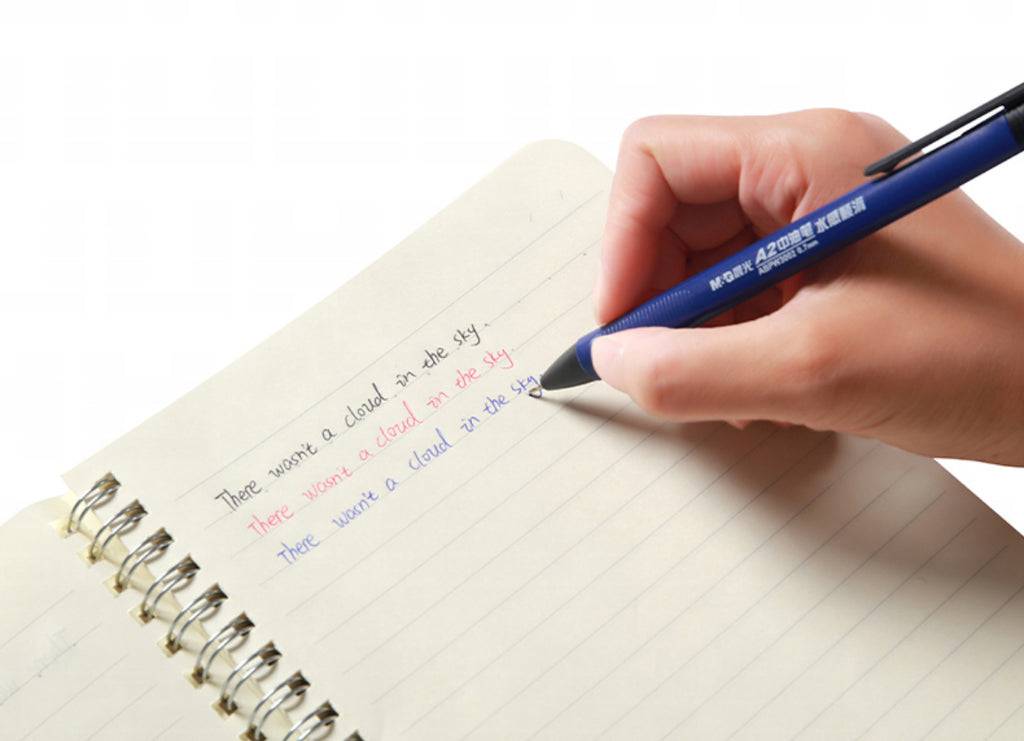 There wasn't a cloud in the sky.
There wasn't a cloud in the sky.
There wasn't a cloud in the sky
M&G晨光 A2中油笔 水感顺滑
ABPW3002 0.7mm